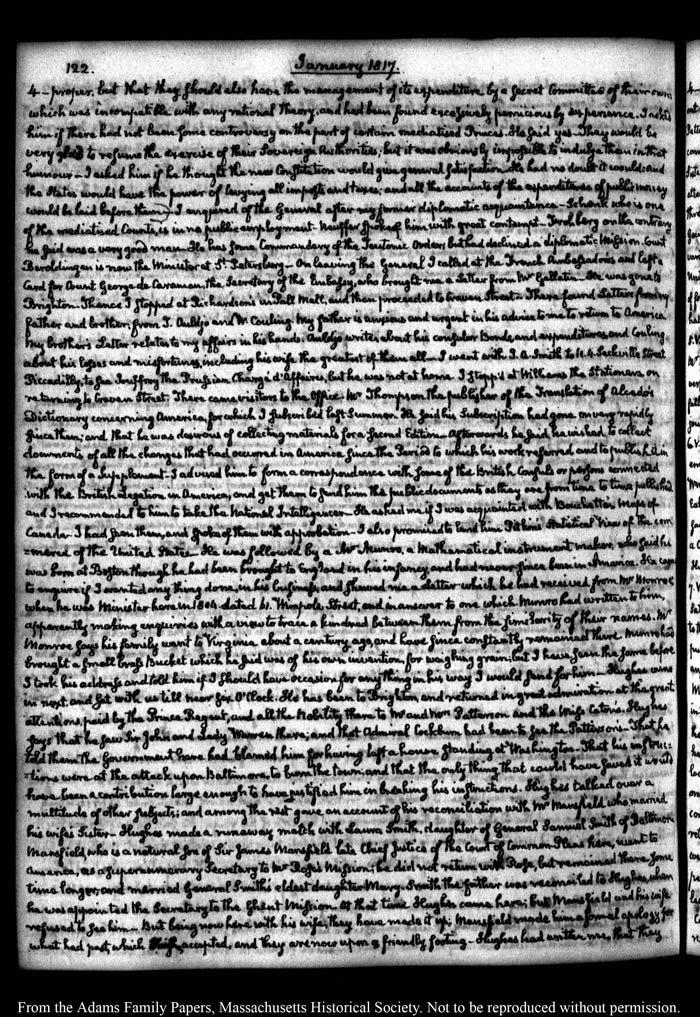 122. January 1817.
4 — proper. but that they should also have the management of its expenditure by a Secret Committee of their own
which was incompatible with any rational Theory, and had been found excessively pernicious by experience. I asked
him if there had not been some controversy on the part of certain mediatised Princes. He said yes. They would be
very glad to resume the exercise of their Sovereign Authorities; but it was obviously impossible to indulge them in that
humour — I asked him if he thought the new Constitution would give general satisfaction. He had no doubt it would: and
the States would have the power of levying all imposts and taxes; and all the accounts of the expenditures of public money
would be laid before them. I enquired of the General after my former diplomatic acquaintance — Schenk who is one
of the mediatised Counts, is in no public employment. Neuffer spoke of him with great contempt — Frohberg on the contrary
he said was a very good man. He has some Commandery of the Teutonic Order, but had declined a diplomatic Mission. Count
Beroldingen is now the Minister at St. Petersburg — On leaving the General I called at the French Ambassadors and left a
Card for Count George de Caraman, the Secretary of the Embassy, who brought me a Letter from Mr Gallatin — He was gone to
Brighton. Thence I stopped at Richardson's in Pall Mall, and then proceeded to Craven Street — There found Letters from my
father and brother; from T. Auldjo and W. Couling. My father is anxious and urgent in his advice to me to return to America
My brother's Letter relates to my affairs in his hands. Auldjo writes about his consular Bonds, and expenditures, and Couling
about his losses and misfortunes, including his wife the greatest of them all — I went with J. A. Smith to N. 4 Sackville Street
Piccadilly, to see Jouffroy the Prussian Chargé d'Affaires, but he was not at home. I stopp'd at Williams the Stationers on
returning to Craven Street. There came visitors to the Office. Mr Thompson the publisher of the Translation of Alcedo's
Dictionary concerning America, for which I subscribed last Summer. He said his Subscription had gone on very rapidly
since then; and that he was desirous of collecting materials for a Second Edition — Afterwards he said he wished to collect
documents of all the changes that had occurred in America since the Period to which his work referred and to publish it in
the form of a Supplement — I advised him to form a correspondence with some of the British Consuls or persons connected
with the British Legation in America, and get them to send him the public documents as they are from time to time published
and I recommended to him to take the National Intelligencer. He asked me if I was acquainted with Bouchette's Maps of
Canada. I had seen them, and spoke of them with approbation — I also promised to lend him Pitkin's Statistical View of the com
=merce of the United States — He was followed by a Mr Munro, a Mathematical instrument maker, who said he
was born at Boston though he had been brought to England in his infancy and had never since been in America. He came
to enquire if I wanted any thing done, in his business, and shewed me a Letter which he had received from Mr Monroe
when he was Minister here in 1804 dated Wimpole Street, and in answer to one which Munro had written to him,
apparently making enquiries with a view to trace a kindred between them from the similarity of their names. Mr
Monroe says his family went to Virginia about a century ago, and have since constantly remained there. Munro had
brought a small brass Bucket which he said was of his own invention, for weighing grain; but I have seen the same before
I took his address and told him if I should have occasion for any thing in his way I would send for him — Hughes came
in next, and sat with us till near six O'Clock. He has been to Brighton and returned in great admiration at the great
attentions, paid by the Prince Regent, and all the Nobility there to Mr and Mrs Patterson and the Miss Catons. Hughes
says that he saw Sir John and Lady Warren there; and that Admiral Cockburn had been to see the Pattersons — That he
told them the Government here had blamed him for having left a house standing at Washington — That his instruc
=tions were at the attack upon Baltimore, to burn the town; and that the only thing that could have saved it would
have been a contribution large enough to have justified him in breaking his instructions. Hughes talked over a
multitude of other subjects; and among the rest gave an account of his reconciliation with Mr Mansfield who married
his wife's Sister — Hughes made a runaway match with Laura Smith, daughter of General Samuel Smith of Baltimore
Mansfield, who is a natural son of Sir James Mansfield late Chief Justice of the Court of Common Pleas here, went to
America, as a supernumerary Secretary to Mr Rose's Mission; he did not return with Rose, but remained there some
time longer, and married General Smith's eldest daughter Mary. Smith the father was reconciled to Hughes, when
he was appointed the Secretary to the Ghent Mission. At that time Hughes came here; but Mansfield and his wife
refused to see him — But being now here with his wife, they have made it up; Mansfield made him a formal apology for
what had past, which accepted, and they are now upon a friendly footing — Hughes had written me, that they
From the Adams Family Papers, Massachusetts Historical Society. Not to be reproduced without permission.